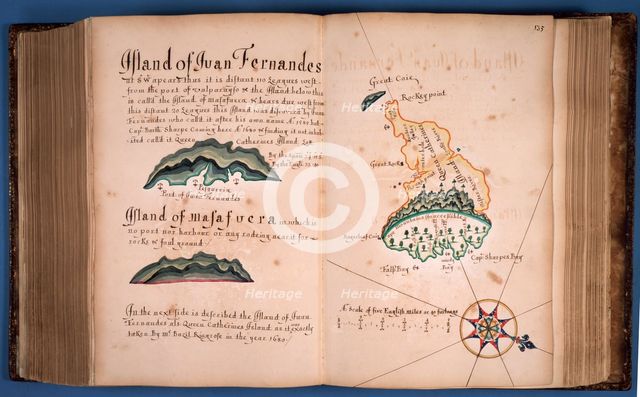 Island of Iuan Fernandes
at 8 w apears thus it is distant 110 Leagues west
from the port of valparayso & the Island below this
in calld the Island of masafuera & bears due west from
this distant 20 Leagues this Island was discovered by Iuan
Fernandes who calld it after his own name
Capt Barth. Sharpe Coming here Ao 1680 & finding it not inhab
ited calld it Queen Catherines Island Lat
By the
By the
Pesqueria
Port of Iuan Fernandes
Island of masafuera in which is
no port nor harbour or any rodeing near it for
rocks & foul ground
In the next side is described the Island of Iuan
Fernandes als Queen Catherines Island as it exactly
taken By mr Bazil Ringrose in the year 1680
123
Great Caie
Rockey point
Great Rock
Queen Catherines Island
False Bay
Bay
Capt Sharpes Bay
A Scale of five English miles or 40 furlongs
Heritage
Heritage
Heritage
Heritage